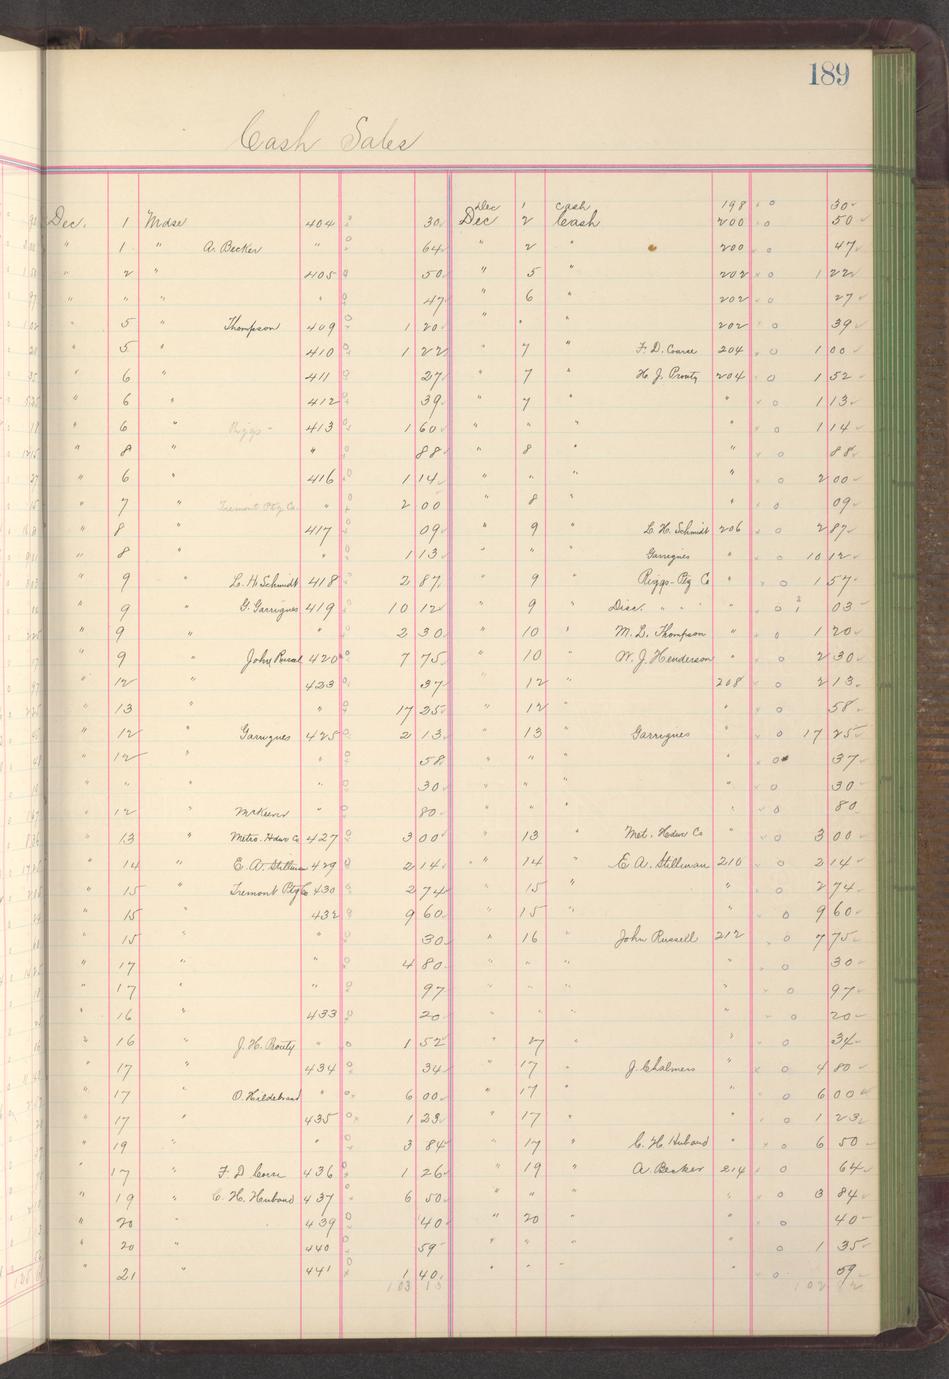 189
Cash Sales
Dec 1 cash 198 30
Dec. 1 Mdse 404 30 Dec 2 Cash 200 50
" 1 " A. Becker " 64 " 2 " 200 47
" 2 " 405 50 " 5 " 202 1 22
" " " " 47 " 6 " 202 27
" 5 " Thompson 409 1 20 " " " 202 39
" 5 " 410 1 22 " 7 " F. D. Coarse 204 1 00
" 6 " 411 27 " 7 " H. J. Prouty 204 1 52
" 6 " 412 39 " 7 " " 1 13
" 6 " Riggs - 413 1 60 " " " " 1 14
" 8 " " 88 " 8 " " 88
" 6 " 416 1 14 " " " " 2 00
" 7 " Tremont Ptg Co. " 2 00 " 8 " " 09
" 8 " 417 09 " 9 " L. H. Schmidt 206 2 87
" 8 " " 1 13 " " " Garrignes " 10 12
" 9 " L. H. Schmidt 418 2 87 " 9 " Riggs - Ptg Co " 1 57
" 9 " G. Garrignes 419 10 12 " 9 " Disc. " " " 03
" 9 " " 2 30 " 10 " M. L. Thompson " 1 20
" 9 " John Russel 420 7 75 " 10 " W. J. Henderson " 2 30
" 12 " 423 37 " 12 " 208 2 13
" 13 " " 17 25 " 12 " " 58
" 12 " Garrignes 425 2 13 " 13 " Garrignes " 17 25
" 12 " " 58 " " " " 37
" " " " 30 " " " " 30
" 12 " McKeever " 80 " " " " 80
" 13 " Metro. Hdw Co 427 3 00 " 13 " Met. Hdw Co " 3 00
" 14 " E. A. Stillman 429 2 14 " " 14 " E A. Stillman 210 2 14
" 15 " Tremont Ptg Co 430 2 74 " 15 " " 2 74
" 15 " 432 9 60 " 15 " " 9 60
" 15 " " 30 " 16 " John Russell 212 7 75
" 17 " " 4 80 " " " " 30
" 17 " " 97 " " " " 97
" 16 " 433 20 " " " " 20
" 16 " J. H. Prouty " 1 52 " 27 " " 34
" 17 " 434 34 " 17 " J. Chalmers " 4 80
" 17 " O. Hildebrand " 6 00 " 17 " " 6 00
" 17 " 435 1 23 " 17 " " 1 23
" 19 " " 3 84 " 17 " C. H. Huband " 6 50
" 17 " F. D. Corse 436 1 26 " 19 " A. Becker 214 64
" 19 " C. H. Huband 437 6 50 " " " " 3 84
" 20 " 439 40 " 20 " " 40
" 20 " 440 59 " " " " 1 35
" 21 " 441 1 40 " " " " 59
103 13